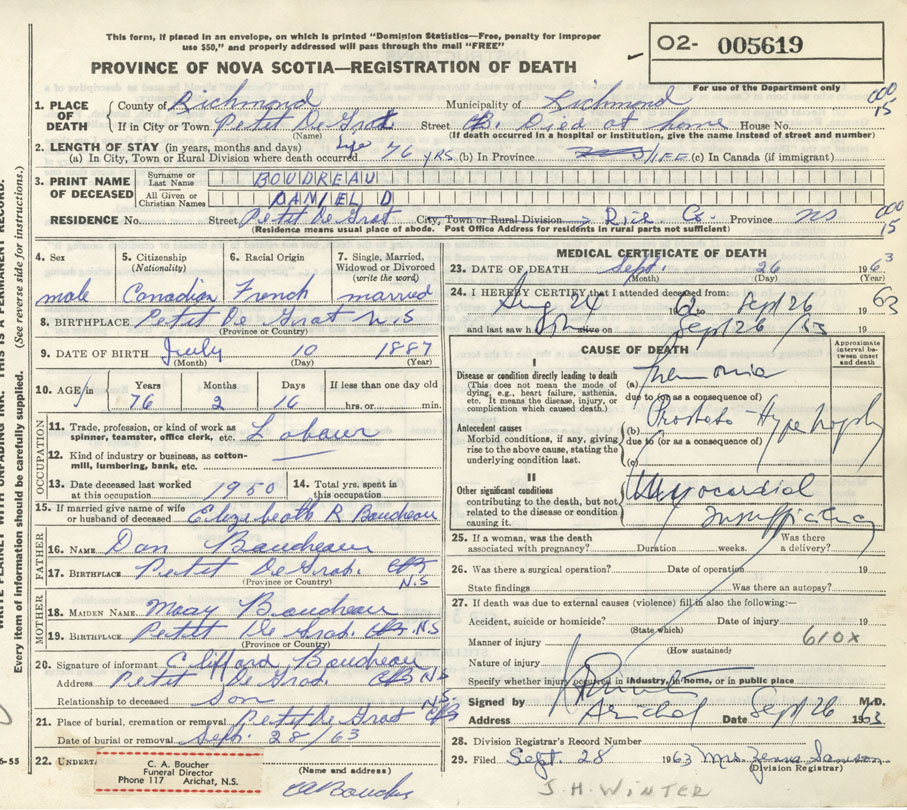 This form, if placed in an envelope, on which is printed "Dominion Statistics—Free, penalty for improper
use $50," and properly addressed will pass through the mail "FREE"
O2- 005619
PROVINCE OF NOVA SCOTIA—REGISTRATION OF DEATH
For use of the Department only
1. PLACE OF DEATH County of Richmond Municipality of Richmond 000 15
If in City or Town Petit De Grat Street C.B. Died at home House No.
(Name) (If death occurred in a hospital or institution, give the name instead of street and number)
2. LENGTH OF STAY (in years, months and days)
(a) In City, Town or Rural Division where death occurred life 76 yrs (b) In Province LIFE (c) In Canada (if immigrant)
3. PRINT NAME OF DECEASED
Surname or Last Name BOUDREAU
All Given or Christian Names DANIEL D
RESIDENCE No. Street Petit De Grat City, Town or Rural Division Rich. Co. Province NS 000 15
(Residence means usual place of abode. Post Office Address for residents in rural parts not sufficient)
4. Sex male
5. Citizenship (Nationality) Canadian
6. Racial Origin French
7. Single, Married, Widowed or Divorced (write the word) married
8. BIRTHPLACE Petit De Grat N.S
(Province or Country)
9. DATE OF BIRTH July 10 1887
(Month) (Day) (Year)
10. AGE in Years 76 Months 2 Days 16 If less than one day old hrs. or min.
OCCUPATION
11. Trade, profession, or kind of work as spinner, teamster, office clerk, etc. Labour
12. Kind of industry or business, as cotton-mill, lumbering, bank, etc.
13. Date deceased last worked at this occupation 1950
14. Total yrs. spent in this occupation
15. If married give name of wife or husband of deceased Elizabeth R Boudreau
FATHER
16. NAME Dan Boudreau
17. BIRTHPLACE Petit De Grat. CB N.S
(Province or Country)
MOTHER
18. MAIDEN NAME Mary Boudreau
19. BIRTHPLACE Petit De Grat. CB. N.S
(Province or Country)
20. Signature of informant Clifford Boudreau
Address Petit De Grat CB N.S
Relationship to deceased Son
21. Place of burial, cremation or removal Petit De Grat CB N.S.
Date of burial or removal Sept. 28/63
22. UNDERT
C. A. Boucher
Funeral Director
Phone 117 Arichat, N.S.
(Name and address)
CA Boucher
MEDICAL CERTIFICATE OF DEATH
23. DATE OF DEATH Sept. 26 1963
(Month) (Day) (Year)
24. I HEREBY CERTIFY that I attended deceased from:
Aug 24 19 62 to Sept 26 19 63
and last saw h alive on Sept 26/63 19
CAUSE OF DEATH
Approximate interval between onset and death
I
Disease or condition directly leading to death
(This does not mean the mode of dying, e.g., heart failure, asthenia, etc. It means the disease, injury, or complication which caused death.)
(a)
due to (or as a consequence of)
Antecedent causes
Morbid conditions, if any, giving rise to the above cause, stating the underlying condition last.
(b) Prostate Hypertrophy
due to (or as a consequence of)
(c)
II
Other significant conditions
contributing to the death, but not related to the disease or condition causing it.
Myocardial
Insufficiency
25. If a woman, was the death associated with pregnancy? Duration weeks. Was there a delivery?
26. Was there a surgical operation? Date of operation 19
State findings Was there an autopsy?
27. If death was due to external causes (violence) fill in also the following:—
Accident, suicide or homicide? Date of injury 19
(State which)
Manner of injury 610X
(How sustained)
Nature of injury
Specify whether injury occurred in industry, in home, or in public place
Signed by M.D.
Address Arichat Date Sept 26 1963
28. Division Registrar's Record Number
29. Filed Sept. 28 1963 Mrs.
(Division Registrar)
J.H. WINTER
WRITE PLAINLY WITH UNFADING INK. THIS IS A PERMANENT RECORD.
Every item of information should be carefully supplied. (See reverse side for instructions.)
6-55